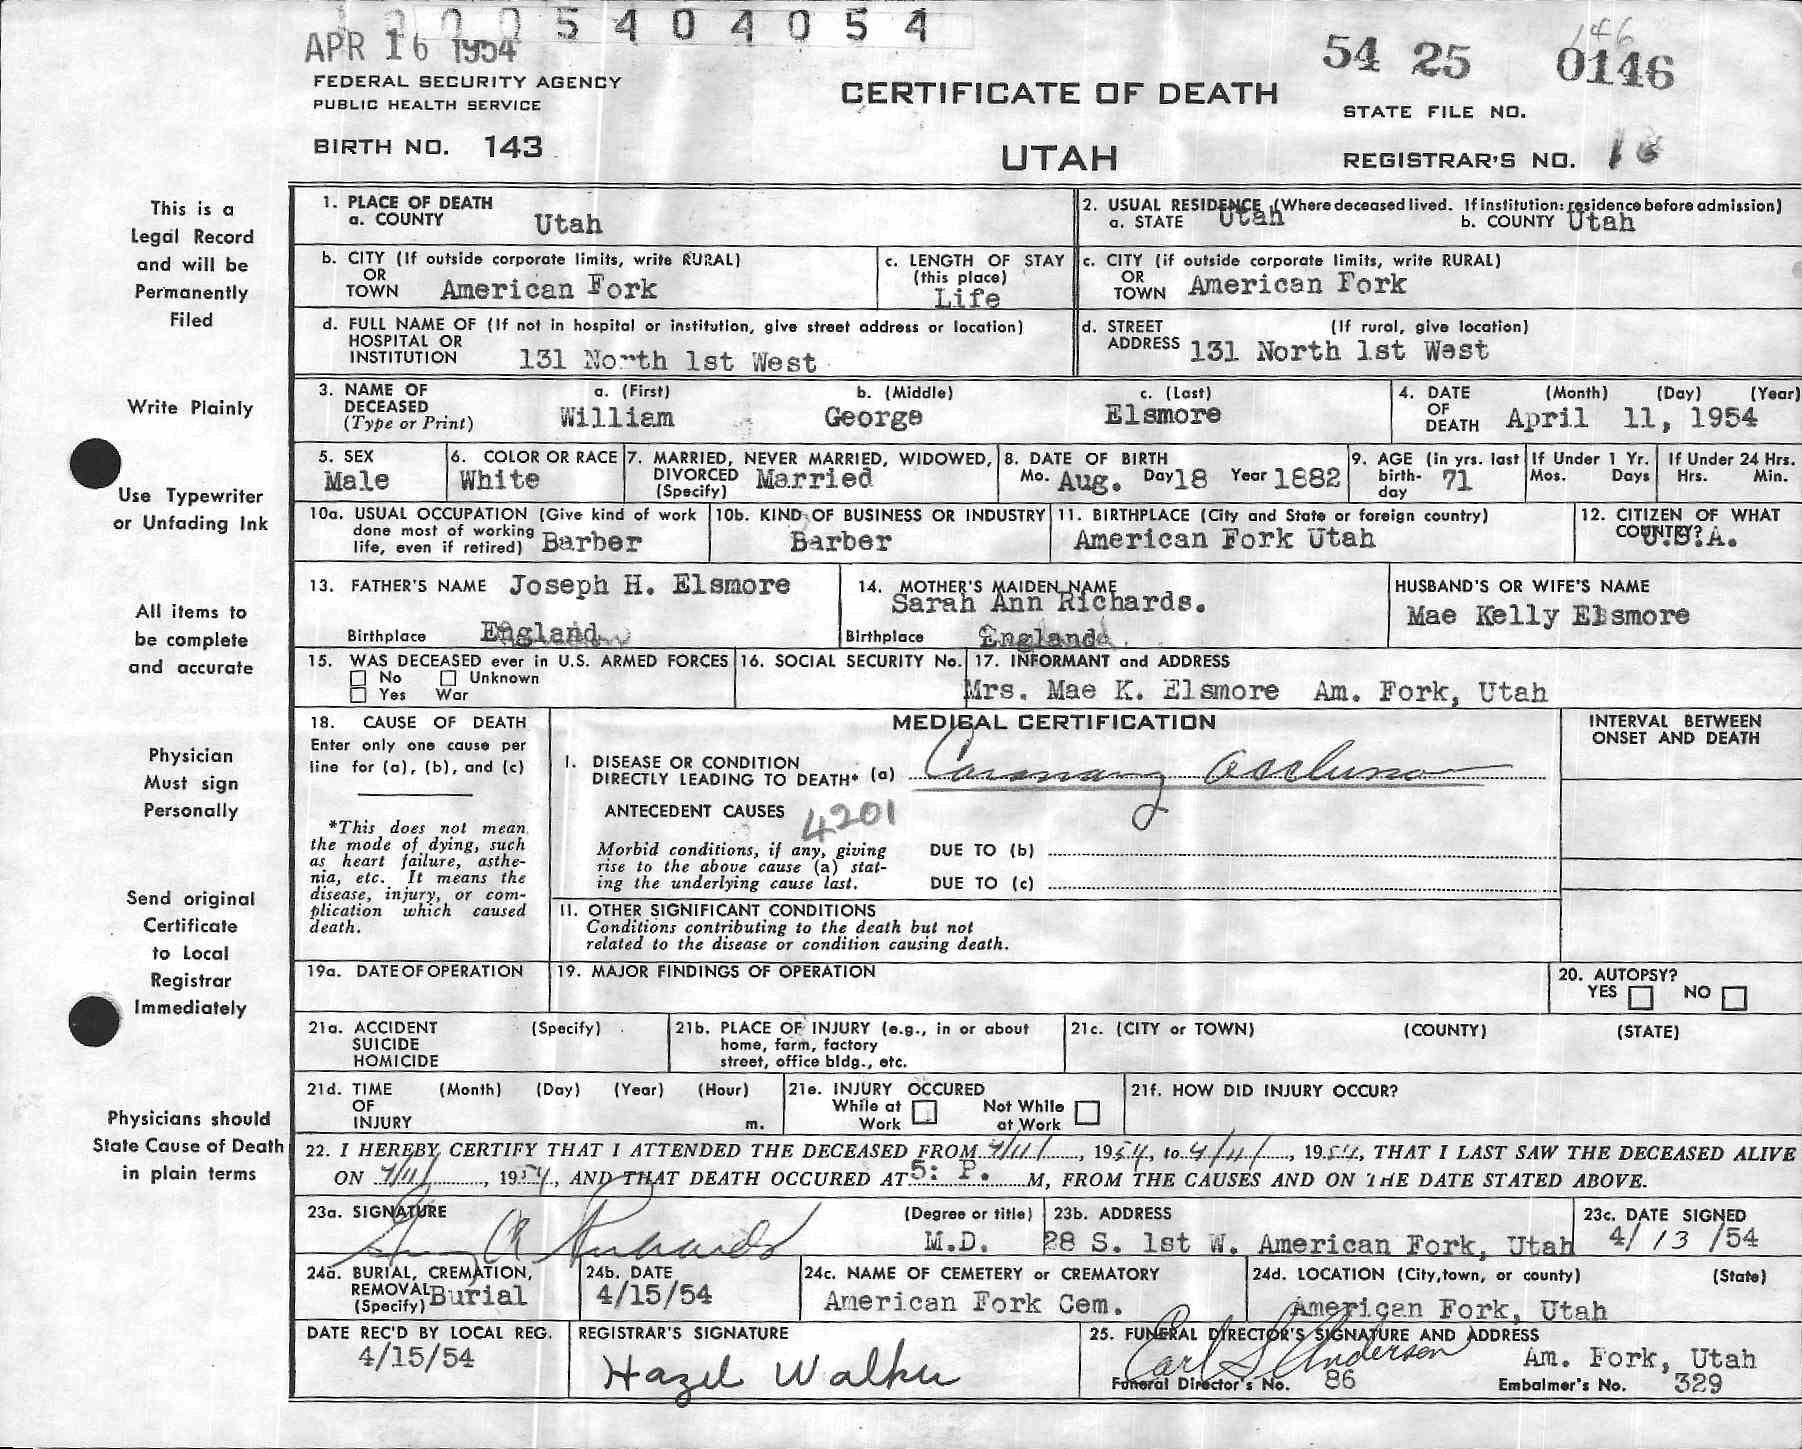 5404054
APR 16 1954
54 25 0146
146
FEDERAL SECURITY AGENCY
PUBLIC HEALTH SERVICE
CERTIFICATE OF DEATH
STATE FILE NO.
BIRTH NO. 143
UTAH
REGISTRAR'S NO.
This is a
Legal Record
and will be
Permanently
Filed
Write Plainly
Use Typewriter
or Unfading Ink
All items to
be complete
and accurate
Physician
Must sign
Personally
Send original
Certificate
to Local
Registrar
Immediately
Physicians should
State Cause of Death
in plain terms
1. PLACE OF DEATH
a. COUNTY Utah
2. USUAL RESIDENCE (Where deceased lived. If institution: residence before admission)
a. STATE Utah b. COUNTY Utah
b. CITY (If outside corporate limits, write RURAL)
OR
TOWN American Fork
c. LENGTH OF STAY
(this place)
Life
c. CITY (if outside corporate limits, write RURAL)
OR
TOWN American Fork
d. FULL NAME OF (If not in hospital or institution, give street address or location)
HOSPITAL OR
INSTITUTION 131 North 1st West
d. STREET (If rural, give location)
ADDRESS 131 North 1st West
3. NAME OF a. (First) b. (Middle) c. (Last)
DECEASED
(Type or Print) William George Elsmore
4. DATE (Month) (Day) (Year)
OF
DEATH April 11, 1954
5. SEX
Male
6. COLOR OR RACE
White
7. MARRIED, NEVER MARRIED, WIDOWED,
DIVORCED Married
(Specify)
8. DATE OF BIRTH
Mo. Aug. Day 18 Year 1882
9. AGE (in yrs. last
birth- 71
day
If Under 1 Yr.
Mos. Days
If Under 24 Hrs.
Hrs. Min.
10a. USUAL OCCUPATION (Give kind of work
done most of working
life, even if retired) Barber
10b. KIND OF BUSINESS OR INDUSTRY
Barber
11. BIRTHPLACE (City and State or foreign country)
American Fork Utah
12. CITIZEN OF WHAT
COUNTRY? U.S.A.
13. FATHER'S NAME Joseph H. Elsmore
Birthplace England
14. MOTHER'S MAIDEN NAME
Sarah Ann Richards.
Birthplace England
HUSBAND'S OR WIFE'S NAME
Mae Kelly Elsmore
15. WAS DECEASED ever in U.S. ARMED FORCES
No Unknown
Yes War
16. SOCIAL SECURITY No.
17. INFORMANT and ADDRESS
Mrs. Mae K. Elsmore Am. Fork, Utah
18. CAUSE OF DEATH
Enter only one cause per
line for (a), (b), and (c)
*This does not mean
the mode of dying, such
as heart failure, asthe-
nia, etc. It means the
disease, injury, or com-
plication which caused
death.
MEDICAL CERTIFICATION
I. DISEASE OR CONDITION
DIRECTLY LEADING TO DEATH* (a) Coronary Occlusion
ANTECEDENT CAUSES 4201
Morbid conditions, if any, giving
rise to the above cause (a) stat-
ing the underlying cause last.
DUE TO (b)
DUE TO (c)
II. OTHER SIGNIFICANT CONDITIONS
Conditions contributing to the death but not
related to the disease or condition causing death.
INTERVAL BETWEEN
ONSET AND DEATH
19a. DATE OF OPERATION
19. MAJOR FINDINGS OF OPERATION
20. AUTOPSY?
YES NO
21a. ACCIDENT (Specify)
SUICIDE
HOMICIDE
21b. PLACE OF INJURY (e.g., in or about
home, farm, factory
street, office bldg., etc.
21c. (CITY or TOWN) (COUNTY) (STATE)
21d. TIME (Month) (Day) (Year) (Hour)
OF
INJURY m.
21e. INJURY OCCURED
While at Not While
Work at Work
21f. HOW DID INJURY OCCUR?
22. I HEREBY CERTIFY THAT I ATTENDED THE DECEASED FROM 4/11/, 1954, to 4/11/, 1954, THAT I LAST SAW THE DECEASED ALIVE
ON 4/11/, 1954, AND THAT DEATH OCCURED AT 5: P. M, FROM THE CAUSES AND ON THE DATE STATED ABOVE.
23a. SIGNATURE (Degree or title)
Richards M.D.
23b. ADDRESS
28 S. 1st W. American Fork, Utah
23c. DATE SIGNED
4/13/54
24a. BURIAL, CREMATION,
REMOVAL Burial
(Specify)
24b. DATE
4/15/54
24c. NAME OF CEMETERY or CREMATORY
American Fork Cem.
24d. LOCATION (City, town, or county) (State)
American Fork, Utah
DATE REC'D BY LOCAL REG.
4/15/54
REGISTRAR'S SIGNATURE
Hazel Walker
25. FUNERAL DIRECTOR'S SIGNATURE AND ADDRESS
Earl S Anderson Am. Fork, Utah
Funeral Director's No. 86 Embalmer's No. 329